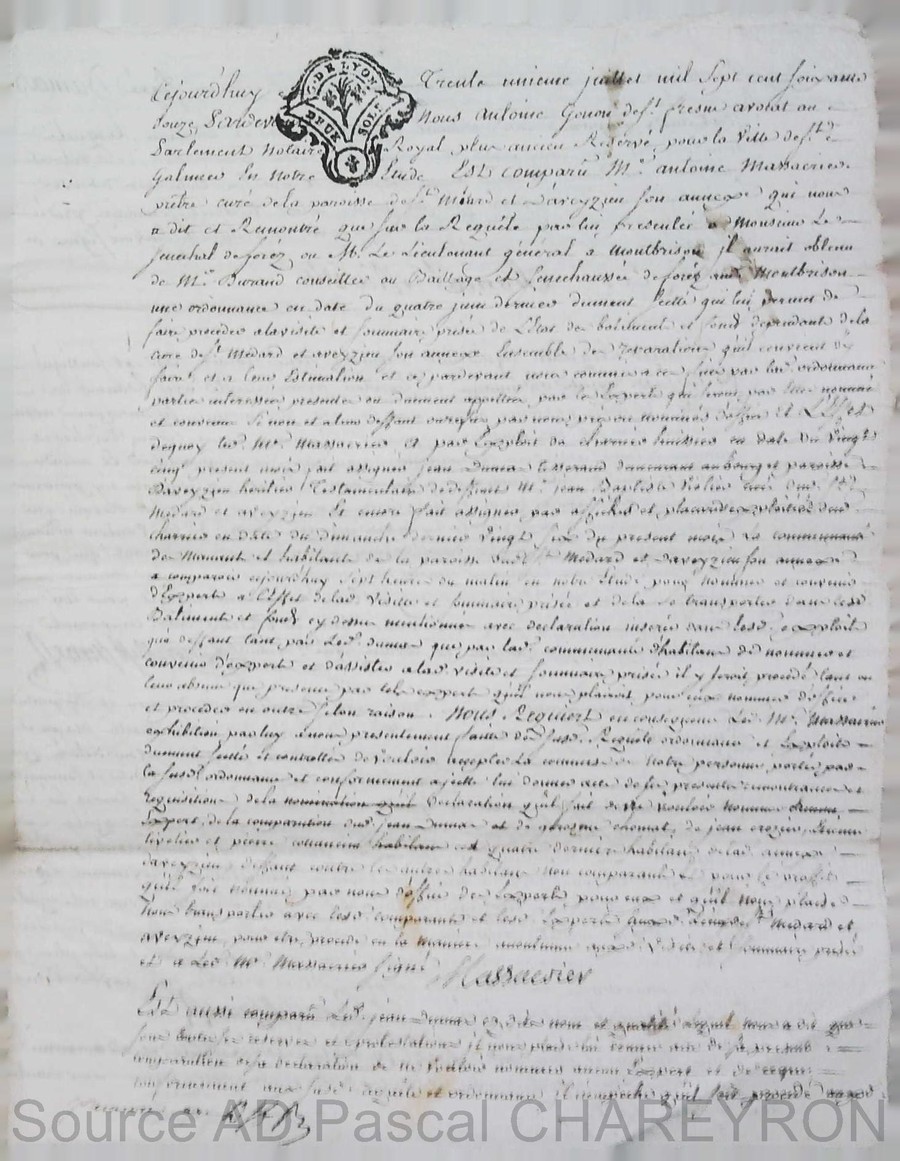 Cejourd'huy Trente unieme juillet mil sept cent soixante
G. DE LYON
DEUX SOLS
douze Pardev Nous antoine Gonon de St. fresne avocat au
Parlement Notaire Royal plus ancien Reservé pour la ville de St.
Galmier En Notre Etude Est comparu Mre. antoine Massacrier
prêtre curé de la paroisse de St. Médard et D'aveyzieu son annexe qui nous
a dit et Remontré que sur la Requête par luy presentée a Monsieur Le
senechal de forez ou Mr. Le Lieutenant général a Montbrison il aurait obtenu
de Mr. Durand conseiller au Baillage et senechaussée de forez Montbrison
une ordonnance en date du quatre juin dernier dument scellé qui luy permet de
faire proceder a la visite et sommaire prisée de L'état des batiments et fonds dependant de la
cure de St. Médard et aveyzieu son annexe Ensemble des reparations qu'il convient d'y
faire et a leur Estimation et ce pardevant nous commis a ce faire par lad. ordonnance
partie interessée presente ou dument appellée par les Experts qui seront par elle nommé
et convenu si non et a leur deffaut nommés d'office Et a L'effet
dequoy led. Mr. Massacrier a par Exploit de charrier huissier en date du vingt
cinq present mois fait assigner jean Dumas tisserand demeurant au bourg et paroisse
D'aveyzieu heritier Testamentaire de deffunt Mre. jean Baptiste curé dud. St.
Médard et aveyzieu Et encore fait assigner par affiches et placards exploitées dud.
charrier en date du dimanche dernier vingt six du present mois La communauté
des Manants et habitants de la paroisse dud. St. Médard et d'aveyzieu son annexe
a comparoir cejourd'huy sept heures du matin en notre Etude pour nommer et convenir
d'Experts a l'Effet de lad. visite et sommaire prisée et de la se transporter dans lesd.
Batiments et fonds cy dessus mentionnés avec declaration inserée dans lesd. exploits
que deffaut tant par led. dumas que par lad. communauté d'habitans de nommer et
convenir d'experts et d'assister a lad. visite et sommaire prisée il y seroit procédé tant en
leur absence que presence par tels experts qu'il nous plairoit pour eux nommer d'office
et proceder en outre selon raison. Nous Requiert en consequence Led. Mr. Massacrier
exhibition par luy a nous presentement faite des susd. Requête ordonnance et Exploits
dument scellé et controllée de vouloir accepter La commission de notre personne portée par
la susd. ordonnance et conformement a icelle lui donner acte de ses presente remontrance et
requisition de la nomination qu'il Declaration qu'il fait de ne vouloir nommer aucun
Expert, de la comparution dud. jean Dumas et de jean crozier,
et pierre habitans ces quatre dernier habitans de lad. annexe
d'aveyzieu deffaut contre les autres habitans non comparants et pour le profit
qu'il soit nommé par nous d'office des Experts pour eux et qu'il nous plaise
Nous transporter avec lesd. comparants et lesd. Experts St. Médard et
aveyzieu pour etre procédé en la maniere accoutumée visite et sommaire prisée
et a Led. Mr. Massacrier signé Massacrier
Est aussi comparu Led. jean Dumas es dits nom et qualité Lequel nous a dit que
sous toutes ses reserves et protestations il nous plaise lui donner acte de sa presente
comparution de sa declaration de ne vouloir nommer aucun Expert et de ce que
conformement aux susd. requête et ordonnance il n'empeche qu'il soit procédé
Source AD-Pascal CHAREYRON